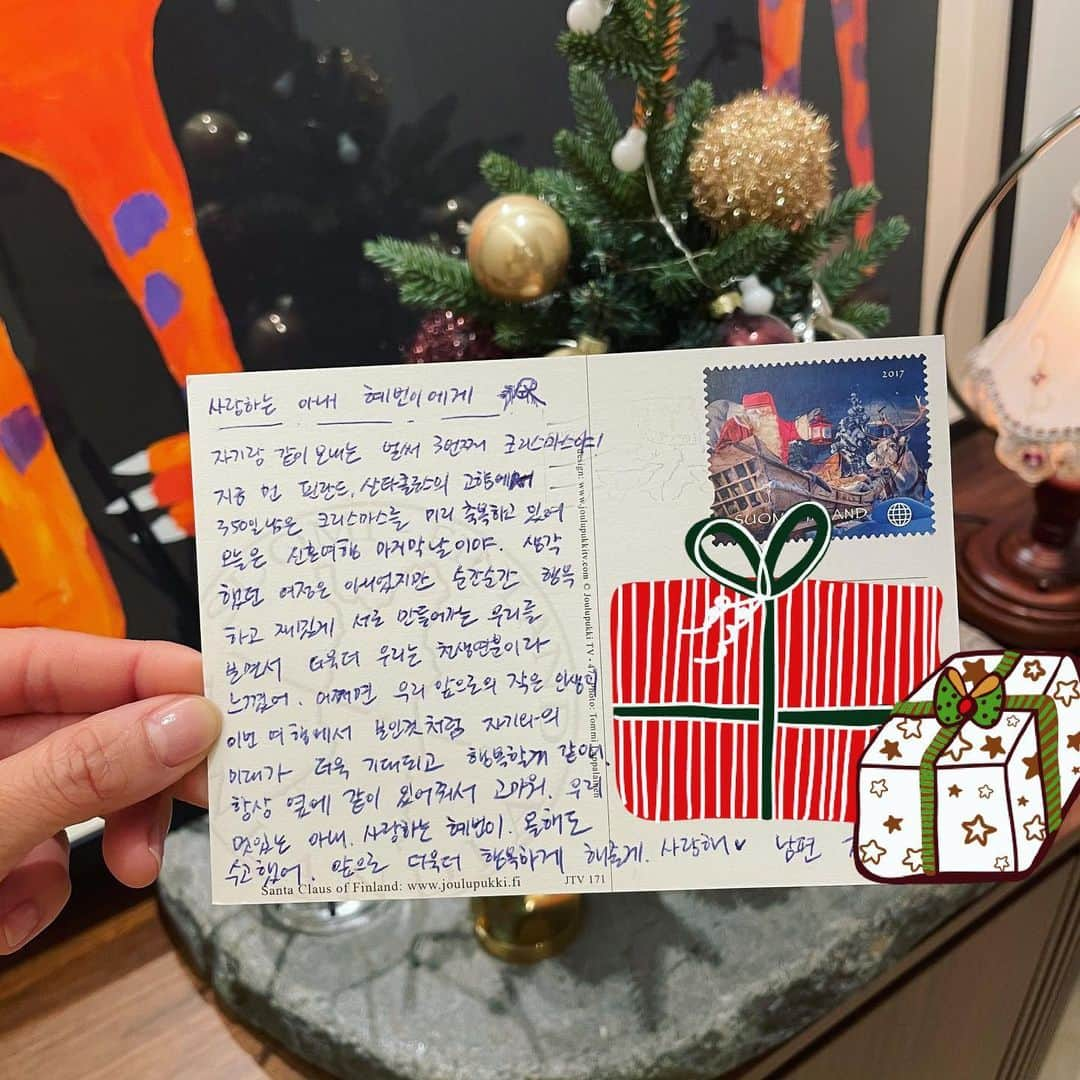 사랑하는 아내 혜번이에게
자기랑 같이 보내는 벌써 3번째 크리스마스야!
지금 먼 핀란드, 산타클로스의 고향에서
350일 남은 크리스마스를 미리 축복하고 있어
오늘은 신혼여행 마지막날이야. 생각
했던 여정은 아니었지만 순간순간 행복
하고 재밌게 서로 만들어가는 우리를
보면서 더욱더 우리는 천생연분이라
느꼈어. 어쩌면 우리 앞으로의 작은 인생
이번 여행에서 보인것처럼 자기와의
미래가 더욱 기대되고 행복할게 같아.
항상 옆에 같이 있어줘서 고마워. 우리
멋있는 아내. 사랑하는 혜번이. 올해도
수고했어. 앞으로 더욱더 행복하게 해줄게. 사랑해♥ 남편
Santa Claus of Finland: www.joulupukki.fi
JTV 171
design: www.joulupukkitv.com © Joulupukki TV
2017
SUOMI FINLAND